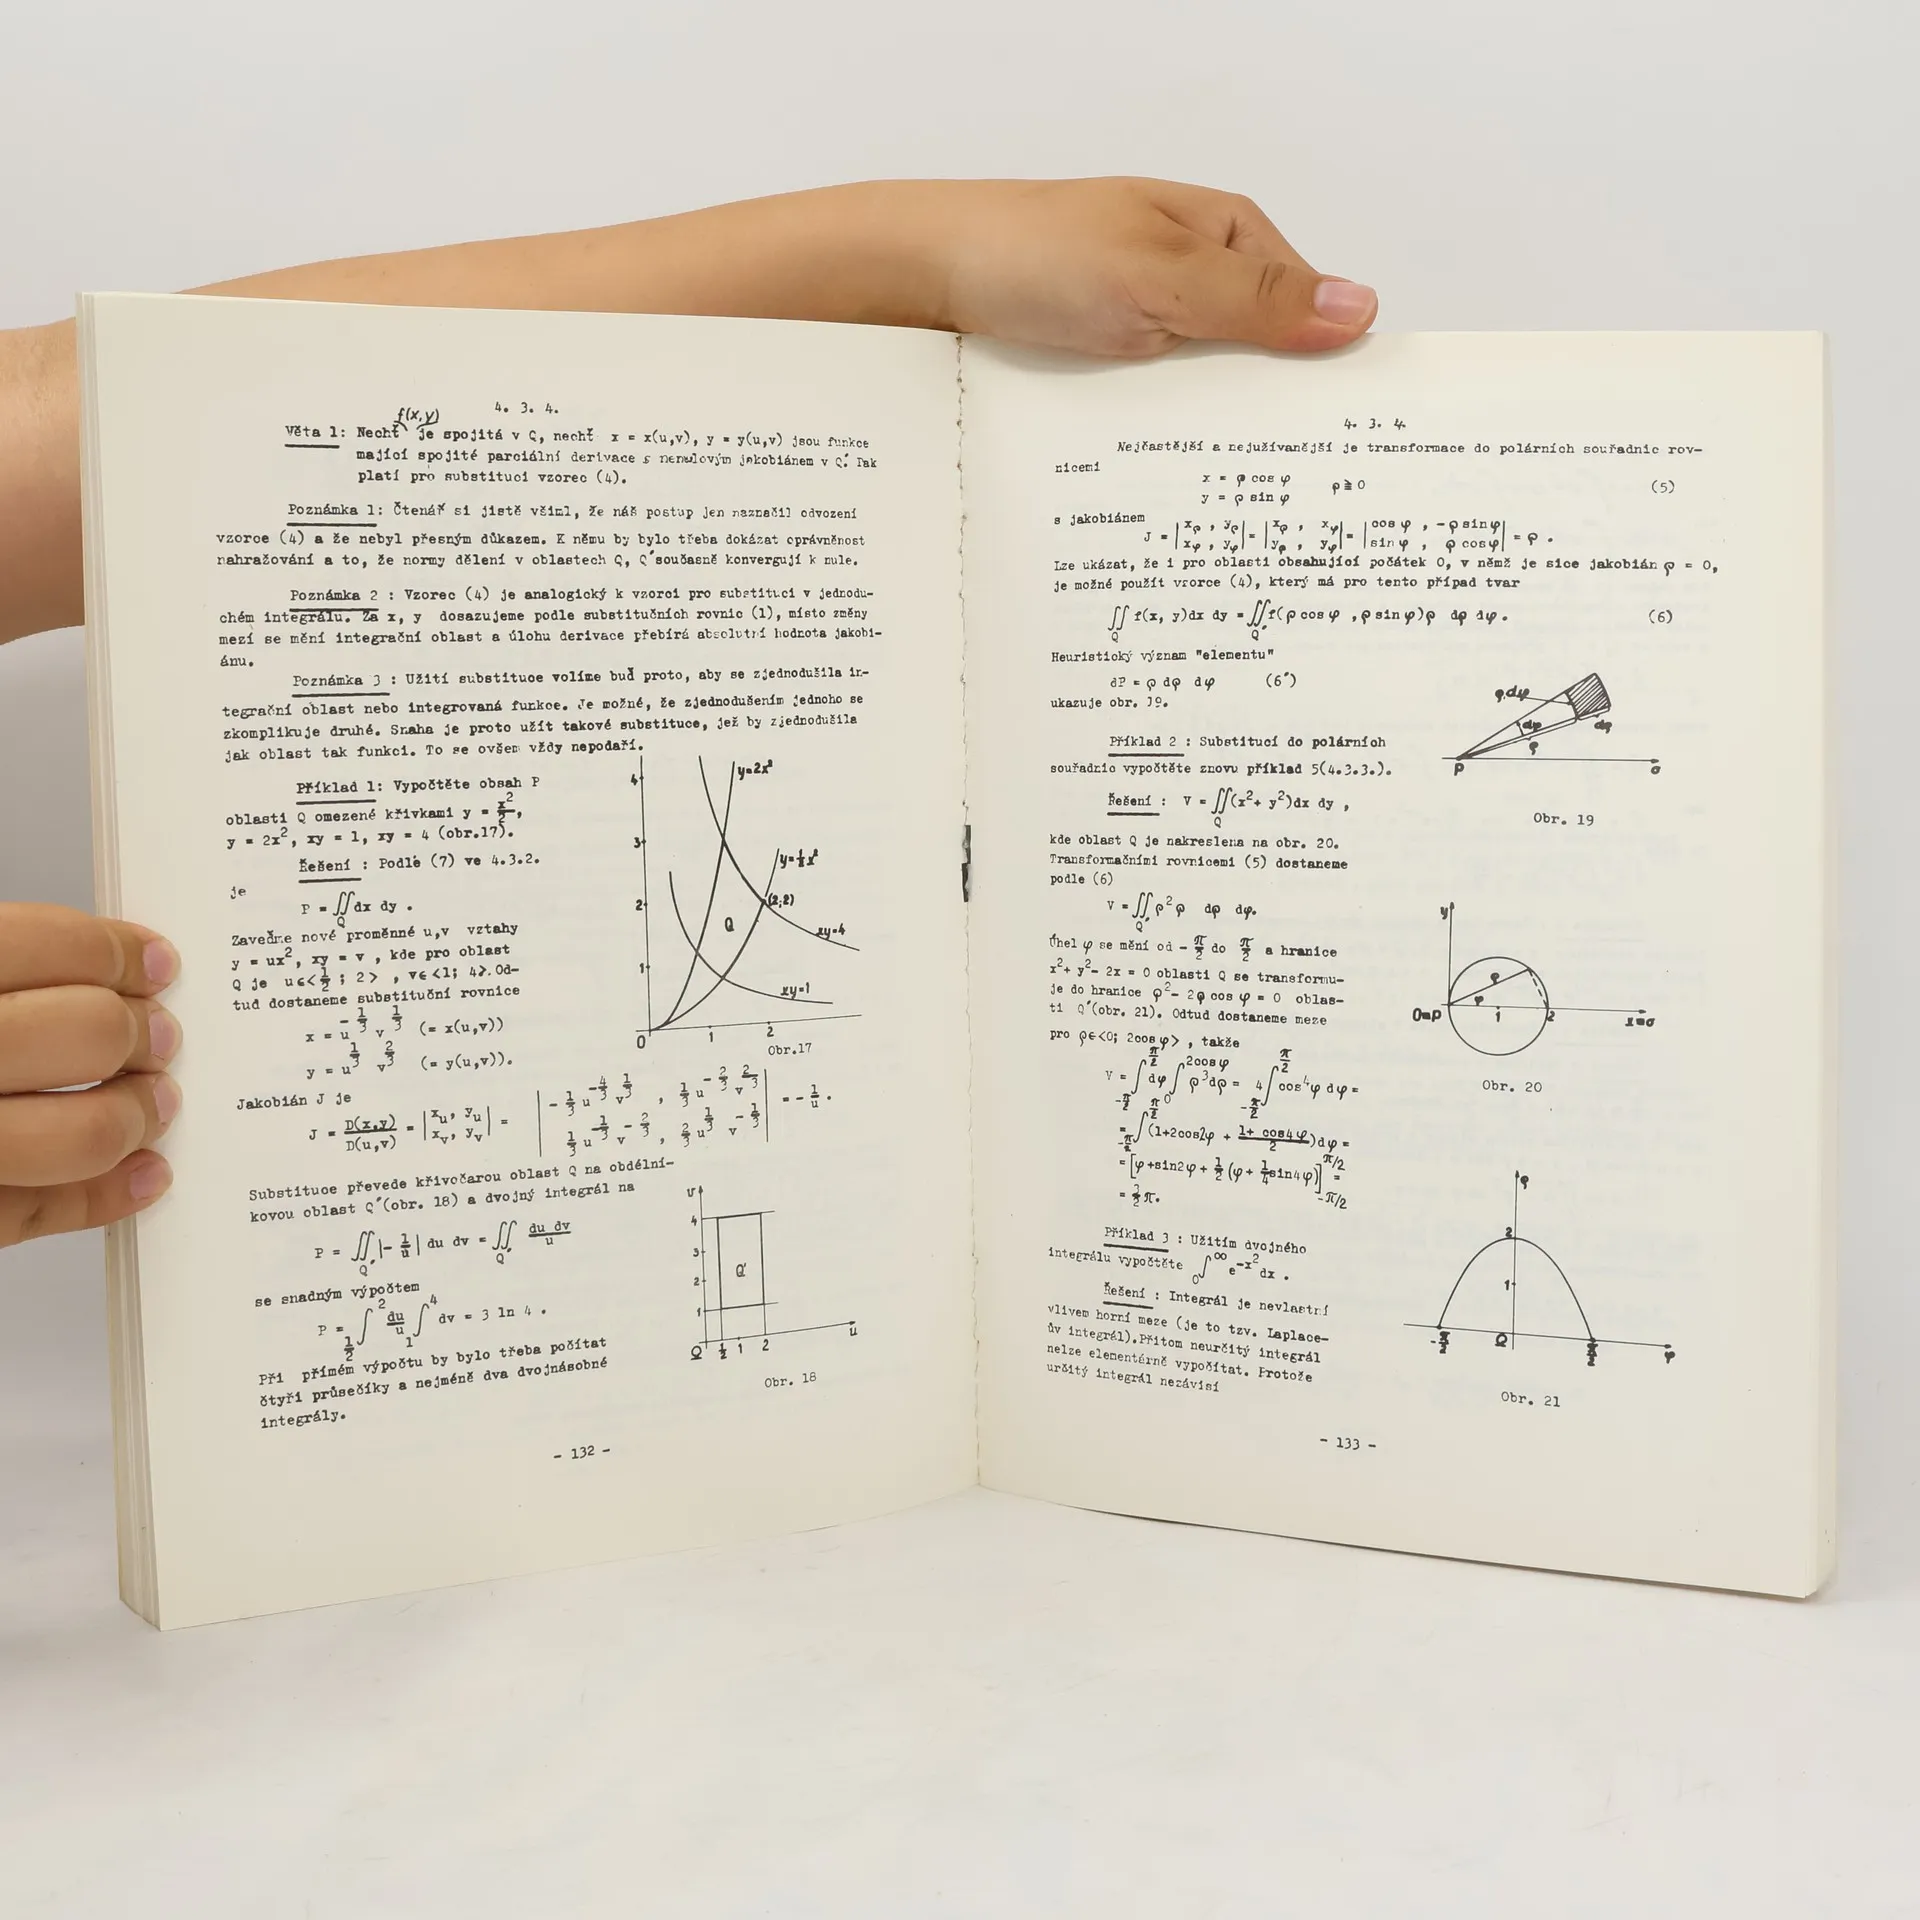 4. 3. 4.
f(x,y)
Věta 1: Nechť je spojitá v Q, nechť x = x(u,v), y = y(u,v) jsou funkce
mající spojité parciální derivace s nenulovým jakobiánem v Q´. Pak
platí pro substituci vzorec (4).
Poznámka 1: Čtenář si jistě všiml, že náš postup jen naznačil odvození
vzorce (4) a že nebyl přesným důkazem. K němu by bylo třeba dokázat oprávněnost
nahražování a to, že normy dělení v oblastech Q, Q´současně konvergují k nule.
Poznámka 2 : Vzorec (4) je analogický k vzorci pro substituci v jednodu-
chém integrálu. Za x, y dosazujeme podle substitučních rovnic (1), místo změny
mezí se mění integrační oblast a úlohu derivace přebírá absolutní hodnota jakobi-
ánu.
Poznámka 3 : Užití substituce volíme buď proto, aby se zjednodušila in-
tegrační oblast nebo integrovaná funkce. Je možné, že zjednodušením jednoho se
zkomplikuje druhé. Snaha je proto užít takové substituce, jež by zjednodušila
jak oblast tak funkci. To se ovšem vždy nepodaří.
Příklad 1: Vypočtěte obsah P
oblasti Q omezené křivkami y = x²/2,
y = 2x², xy = 1, xy = 4 (obr.17).
Řešení : Podle (7) ve 4.3.2.
je
P = ∬_Q dx dy .
Zaveďme nové proměnné u,v vztahy
y = ux², xy = v , kde pro oblast
Q je u∈<1/2 ; 2> , v∈<1; 4>. Od-
tud dostaneme substituční rovnice
x = u^(-1/3) v^(1/3) (= x(u,v))
y = u^(1/3) v^(2/3) (= y(u,v)).
4
3
2
1
0
1
2
y=2x²
y=½x²
(2;2)
Q
xy=4
xy=1
Obr.17
Jakobián J je
J = D(x,y)/D(u,v) = |x_u, y_u; x_v, y_v| = |-1/3 u^(-4/3) v^(1/3) , 1/3 u^(-2/3) v^(2/3); 1/3 u^(-1/3) v^(-2/3) , 2/3 u^(1/3) v^(-1/3)| = - 1/u .
Substituce převede křivočarou oblast Q na obdélní-
kovou oblast Q´(obr. 18) a dvojný integrál na
P = ∬_Q´ |- 1/u| du dv = ∬_Q´ du dv/u
se snadným výpočtem
P = ∫_{1/2}^2 du/u ∫_1^4 dv = 3 ln 4 .
Při přímém výpočtu by bylo třeba počítat
čtyři průsečíky a nejméně dva dvojnásobné
integrály.
v
4
3
2
1
Q´
0 ½ 1 2
u
Obr. 18
- 132 -
4. 3. 4.
Nejčastější a nejužívanější je transformace do polárních souřadnic rov-
nicemi
x = ρ cos φ
y = ρ sin φ ρ ≧ 0 (5)
s jakobiánem
J = |x_ρ , y_ρ; x_φ , y_φ| = |x_ρ , x_φ; y_ρ , y_φ| = |cos φ , -ρ sin φ; sin φ , ρ cos φ| = ρ .
Lze ukázat, že i pro oblasti obsahující počátek O, v němž je sice jakobián ρ = 0,
je možné použít vzorce (4), který má pro tento případ tvar
∬_Q f(x, y)dx dy = ∬_Q´ f(ρ cos φ ,ρ sin φ)ρ dρ dφ . (6)
Heuristický význam "elementu"
dP = ρ dρ dφ (6´)
ukazuje obr. 19.
ρ.dφ
dφ
dρ
ρ
P
o
Obr. 19
Příklad 2 : Substitucí do polárních
souřadnic vypočtěte znovu příklad 5(4.3.3.).
Řešení : V = ∬_Q (x²+ y²)dx dy ,
kde oblast Q je nakreslena na obr. 20.
Transformačními rovnicemi (5) dostaneme
podle (6)
V = ∬_Q´ ρ²ρ dρ dφ.
Úhel φ se mění od - π/2 do π/2 a hranice
x²+ y²- 2x = 0 oblasti Q se transformu-
je do hranice ρ²- 2ρ cos φ = 0 oblas-
ti Q´(obr. 21). Odtud dostaneme meze
pro ρ∈<0; 2cos φ> , takže
V = ∫_{-π/2}^{π/2} dφ ∫_0^{2cos φ} ρ³dρ = 4 ∫_{-π/2}^{π/2} cos⁴φ dφ =
= ∫_{-π/2}^{π/2} (1+2cos2φ + (1+ cos4φ)/2)dφ =
= [φ+sin2φ+ 1/2 (φ+ 1/4 sin4φ)]_{-π/2}^{π/2} =
= 3/2 π.
y
ρ
φ
O≡P
1
2
x≡o
Obr. 20
Příklad 3 : Užitím dvojného
integrálu vypočtěte ∫_0^∞ e^(-x²)dx .
Řešení : Integrál je nevlastní
vlivem horní meze (je to tzv. Laplace-
ův integrál).Přitom neurčitý integrál
nelze elementárně vypočítat. Protože
určitý integrál nezávisí
ρ
2
1
-π/2
0
π/2
φ
Obr. 21
- 133 -